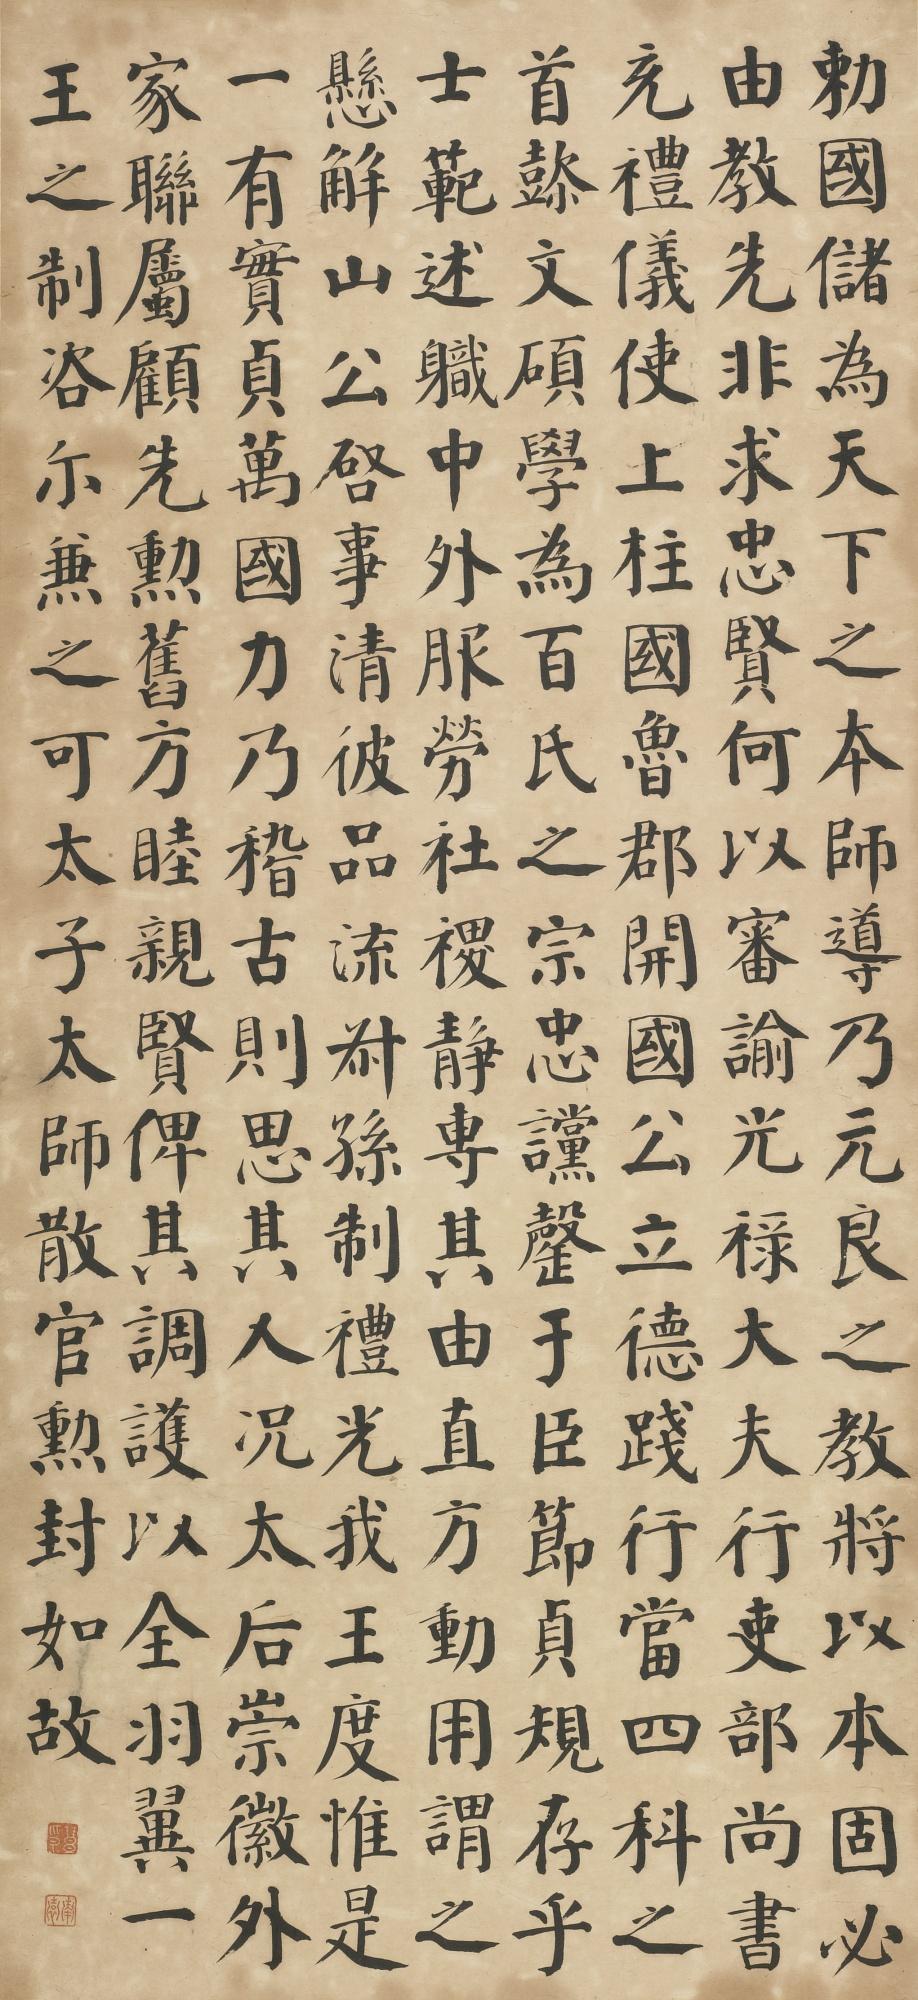 勅國儲為天下之本師導乃元良之教將以本固必
由教先非求忠賢何以審諭光祿大夫行吏部尚書
充禮儀使上柱國魯郡開國公立德踐行當四科之
首懿文碩學為百氏之宗忠讜罄于臣節貞規存乎
士範述職中外服勞社稷静專其由直方動用謂之
懸解山公啓事清彼品流叔孫制禮光我王度惟是
一有實貞萬國力乃稽古則思其人况太后崇徽外
家聯屬顧先勲舊方睦親賢俾其調護以全羽翼一
王之制咨尒兼之可太子太師散官勲封如故